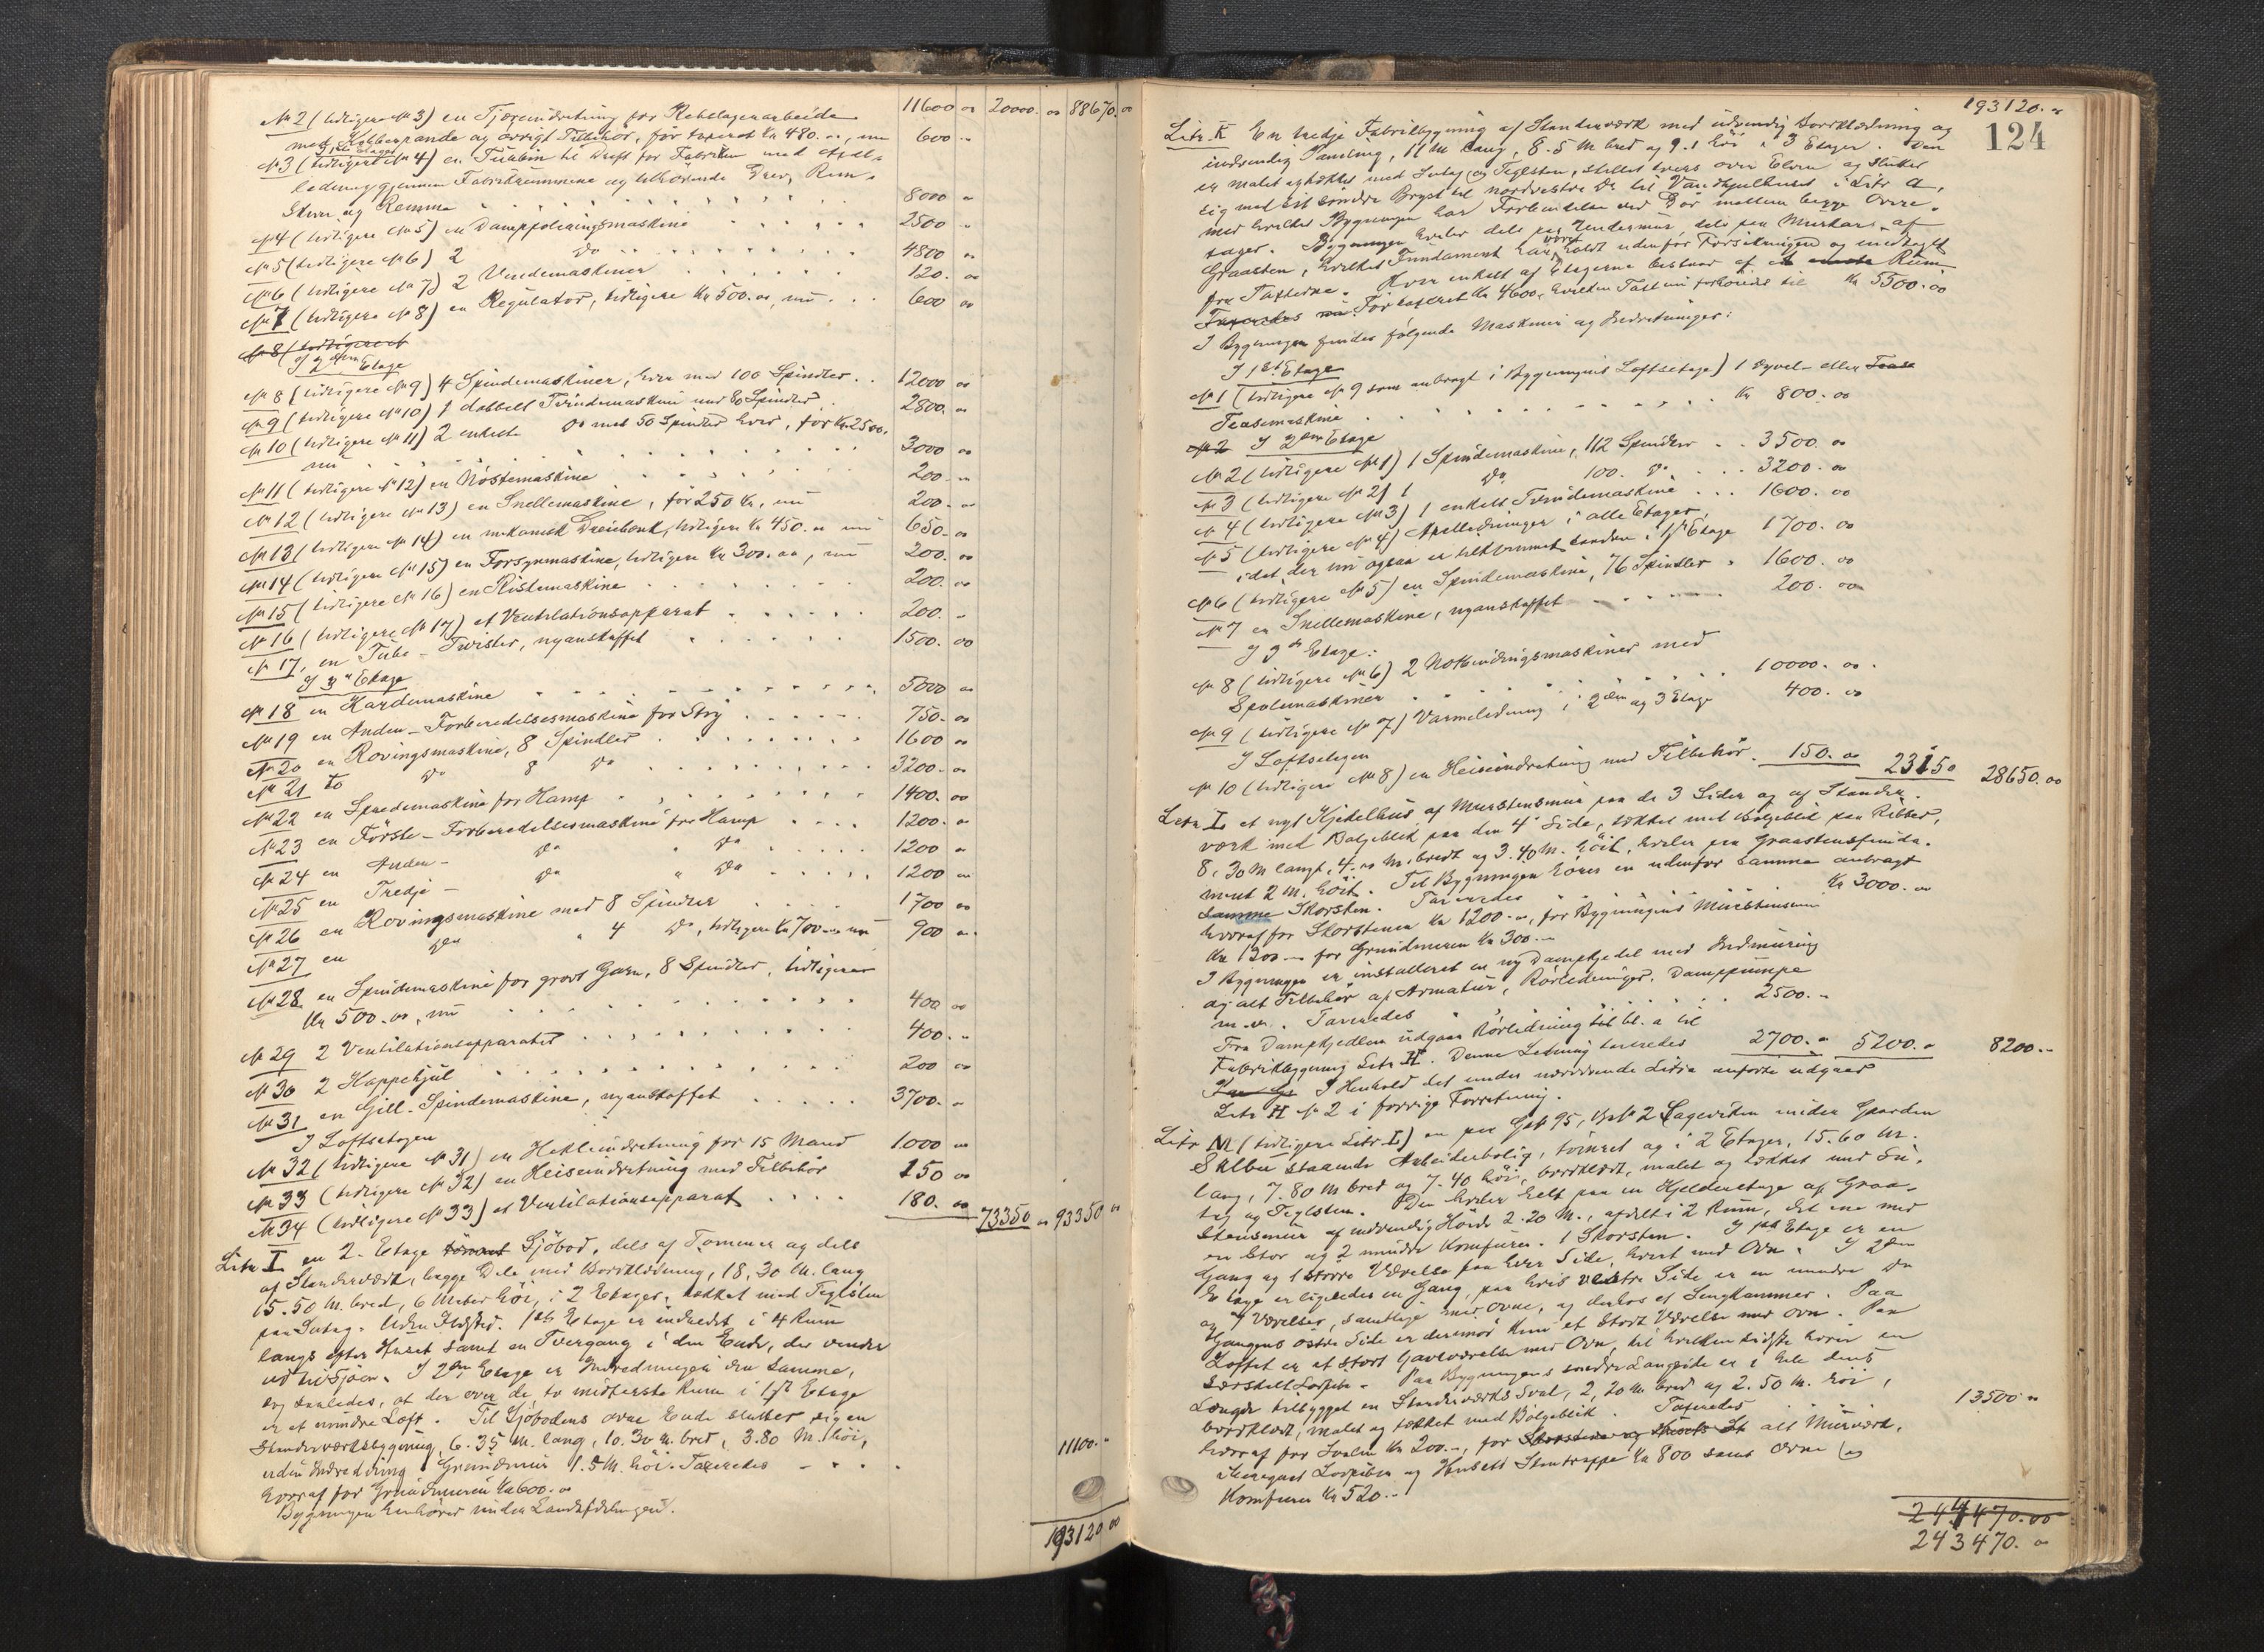 11600 00 20000. 00 88670. 00
No 2 (tidligere No 3) en Tjæreindretning for Rebslagerarbeide
med Kobberpande og øvrigt Tilbehør, før taxeret Kr 480.00, nu 600 "
I 1ste Etage
No 3 (tidligere No 4) en Turbin til Drift for Fabriken med Axel-
ledning gjennem Fabrikrummene og tilhørende Drev, Rem-
skiver og Remme 8000 "
No 4 (tidligere No 5) en Damppoleringsmaskine 2500 "
No 5 (tidligere No 6) 2 Do 4800 "
No 6 (tidligere No 7) 2 Vindemaskiner 120. 00
No 7 (tidligere No 8) en Regulator, tidligere Kr 500.00, nu 600 00
No 8 (tidligere
I 2den Etage
No 8 (tidligere No 9) 4 Spindemaskiner, hver med 100 Spindler 12000 00
No 9 (tidligere No 10) 1 dobbelt Tvindemaskine med 80 Spindler 2800. 00
No 10 (tidligere No 11) 2 enkelte Do med 50 Spindler hver, før Kr. 2500.
nu 3000 00
No 11 (tidligere No 12) en Nøstemaskine 200. "
No 12 (tidligere No 13) en Snellemaskine, før 250 Kr, nu 200. "
No 13 (tidligere No 14) en mekanisk Dreiebænk, tidligere Kr 450.00 nu 650. 00
No 14 (tidligere No 15) en Forsynmaskine, tidligere Kr 300.00, nu 200. 00
No 15 (tidligere No 16) en Ristemaskine 200. 00
No 16 (tidligere No 17) et Ventilationsapparat 200. "
No 17, en Tube-Twister, nyanskaffet 1500. 00
I 3die Etage
No 18 en Kardemaskine 5000 00
No 19 en Anden-Forberedelsesmaskine for Stry 750. 00
No 20 en Rovingsmaskine, 8 Spindler 1600 00
No 21 to Do 8 Do 3200. 00
No 22 en Spredemaskine for Hamp 1400. 00
No 23 en Første-Forberedelsesmaskine for Hamp 1200. "
No 24 en Anden- Do " Do 1200 "
No 25 en Tredje- Do " Do 1200 "
No 26 en Rovingsmaskine med 8 Spindler 1700 00
No 27 en Do " 4 Do, tidligere Kr 700.00 nu 900 00.
No 28 en Spindemaskine for grovt Garn, 8 Spindler, tidligere
Kr 500.00, nu 400 00
No 29 2 Ventilationsapparater 400. "
No 30 2 Happehjul 200 00
No 31 en Gill-Spindemaskine, nyanskaffet 3700. "
I Loftsetagen
No 32 (tidligere No 31) en Hekleindretning for 15 Mand 1000 "
No 33 (tidligere No 32) en Heiseindretning med Tilbehør 150 00
No 34 (tidligere No 33) et Ventilationsapparat 180. 00 73350 00 93350 00
Litr I en 2-Etage tømret Sjøbod, dels af Tømmer og dels
af Standerværk, begge Dele med Bordklædning, 18,30 M. lang
15.50 M. bred, 6 Meter høi, i 2 Etager, tækket med Teglsten
paa Sutag. Uden Ildsted. 1ste Etage er indredet i 4 Rum
langs efter Huset samt en Tvergang i den Ende, der vender
ud til Sjøen. I 2den Etage er Indredningen den samme,
dog saaledes, at der over de to midterste Rum i 1ste Etage
er et mindre Loft. Til Sjøbodens øvre Ende slutter sig en
Standerværksbygning, 6.35 M. lang, 10.30 M. bred, 3.80 M. høi,
uden Indredning. Grundmur 1.5 M. høi. Taxeredes 11100. "
hvoraf for Grundmuren Kr 600.00
Bygningen henhører under Landafdelingen.
193120 00
193120. "
124
Litr. K En tredje Fabrikbygning af Standerværk med udvendig Bordklædning og
indvendig Paneling, 11 M lang, 8.5 M bred og 9.1 høi i 3 Etager. Den
er malet og tækket med Sutag og Teglsten, stillet tvers over Elven og slutter
sig med sit søndre Bryst til nordvestre Do til Vandhjulhuset i Litr A,
med hvilket Bygningen har Forbindelse ved Dør mellem begge Overe-
tager. Bygningen hviler dels paa Undermur, dels paa Murkar af
Graasten, hvilket Fundament har været holdt udenfor Forsikringen og medtaget
fra Taxterne. Hver enkelt af Etagerne bestaar af et Rum
Taxeredes nu Før taxeret Kr 4600, hvilken Taxt nu forhøiedes til Kr 5500.00
I Bygningen findes følgende Maskiner og Indretninger:
I 1ste Etage
No 1 (tidligere No 9 som anbragt i Bygningens Loftsetage) 1 Dyvel- eller Tease
Teasemaskine Kr 800.00
No 2 I 2den Etage
No 2 (tidligere No 1) 1 Spindemaskine, 112 Spindler 3500. 00
No 3 (tidligere No 2) 1 Do 100. Do 3200. 00
No 4 (tidligere No 3) 1 enkelt Tvindemaskine 1600. 00
No 5 (tidligere No 4) Axelledninger i alle Etager,
idet der nu ogsaa er tilkommet saadan i 1ste Etage 1700. 00
No 6 (tidligere No 5) en Spindemaskine, 76 Spindler 1600. 00
No 7 en Snellemaskine, nyanskaffet 200. 00
I 3die Etage:
No 8 (tidligere No 6) 2 Notbindingsmaskiner med
Spolemaskiner 10000. 00.
No 9 (tidligere No 7) Varmeledning i 2den og 3 Etage 400. 00
I Loftsetagen
No 10 (tidligere No 8) en Heiseindretning med Tilbehør 150. 00 23150 28650. 00
Litr L et nyt Kjedelhus af Murstensmur paa de 3 Sider og af Stander-
værk med Bølgeblik paa den 4de Side, tækket med Bølgeblik paa Ribber,
8,30 M langt, 4.00 M. bredt og 3.40 M. høit, hviler paa Graastensfunda-
ment 2 M. høit. Til Bygningen hører en udenfor samme anbragt
Samme Skorsten. Taxeredes Kr 3000. 00
hvoraf for Skorstenen Kr 1200.00, for Bygningens Murstensmur
Kr 1200.- for Grundmuren Kr 300.-
I Bygningen er installeret en ny Dampkjedel med Indmuring
og alt Tilbehør af Armatur, Rørledninger, Damppumpe
m.v. Taxeredes 2500. "
Fra Dampkjedlen udgaar Rørledning til bl. a til
Fabrikbygning Litr H. Denne Ledning taxeredes 2700. " 5200. " 8200. "
I Henhold det under nærværende Litra anførte udgaar
Litr H No 2 i forrige Forretning.
Litr M (tidligere Litr L) en paa Gab 95, BNo 2 Lagevik under Gaarden
Salbu staaende Arbeiderbolig, tømret og i 2 Etager, 15.60 M.
lang, 7.80 M bred og 7.40 høi, bordklædt, malet og tækket med Su-
tag og Teglsten. Den hviler helt paa en Kjelderetage af Graa-
stensmur af indvendig Høide 2.20 M., afdelt i 2 Rum, det ene med
en stor og 2 mindre Komfurer. 1 Skorsten. I 1ste Etage er en
Gang og 1 større Værelse paa hver Side, hvert med Ovn. I 2den
Etage er ligeledes en Gang, paa hvis vestre Side er en mindre Do
og Værelser, samtlige med Ovne, og derhos et Sengkammer. Paa
Gangens østre Side er derimod kun et stort Værelse med Ovn. Paa
Loftet er et stort Gavlværelse med Ovn, til hvilken sidste hører en
særskilt Lospibe. Paa Bygningens søndre Langside er i hele dens
Længde tilbygget en Standerværks Sval, 2,20 M. bred og 2.50 M. høi,
bordklædt, malet og tækket med Bølgeblik. Taxeredes 13500 "
hvoraf for Svalen Kr 200.-, for Skorstene og Husets alt Murværk,
iberegnet Lospiben og Husets Stentrappe Kr 800 samt Ovne og
Komfurer Kr 520.-
244470.00
243470. "